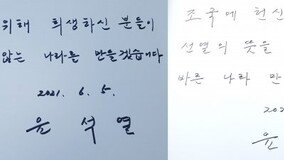 위해 희생하신 분들이
않는 나라를 만들겠습니다
2021. 6. 5.
윤 석 열
조국에 헌신
선열의 뜻을
바른 나라 만
202
윤